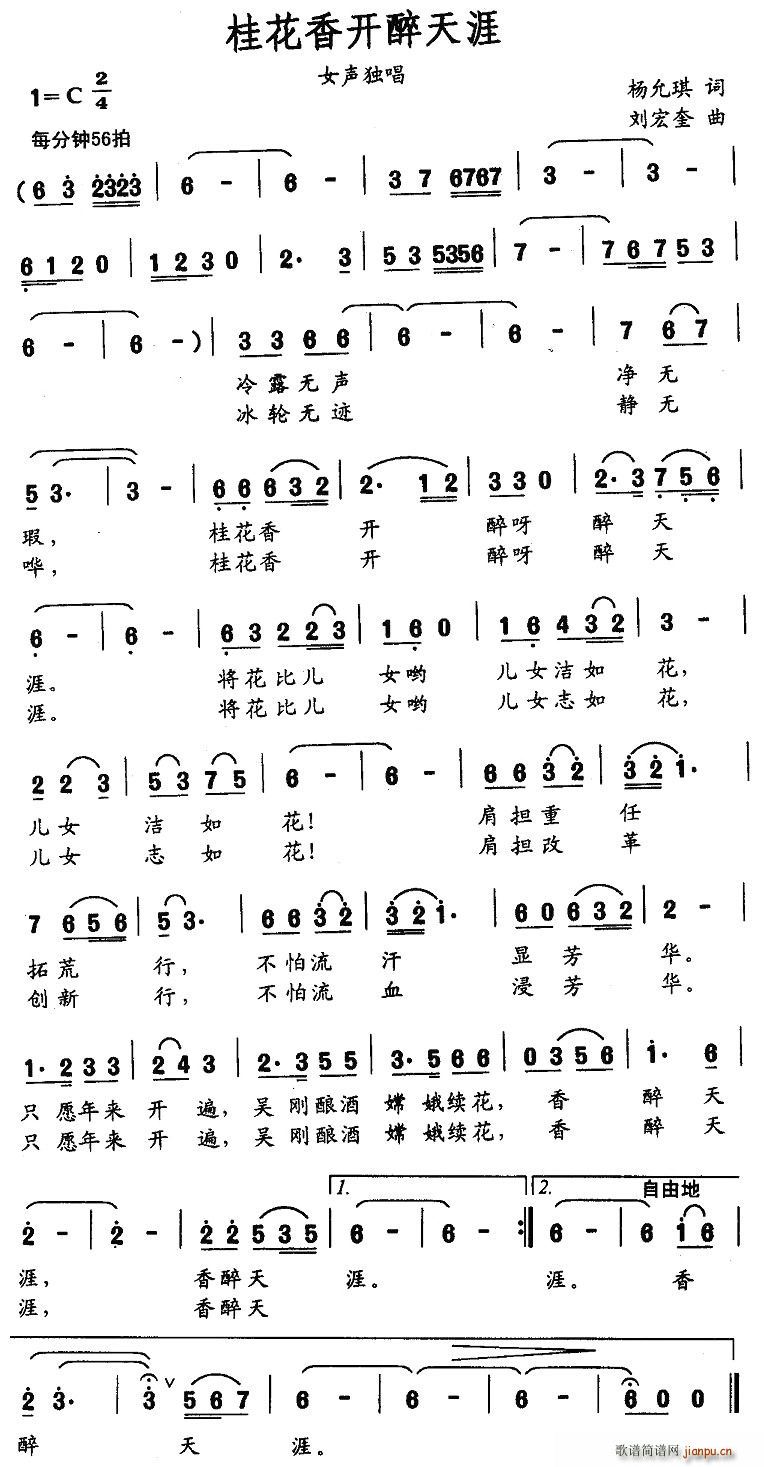 桂花香开醉天涯
女声独唱
1=C 2/4
杨允琪 词
刘宏奎 曲
每分钟56拍
(6 3 2323 | 6 - | 6 - | 3 7 6767 | 3 - | 3 - |
6 1 2 0 | 1 2 3 0 | 2· 3 | 5 3 5356 | 7 - | 7 6 7 5 3 |
6 - | 6 - ) | 3 3 6 6 | 6 - | 6 - | 7 6 7 |
冷露无声 净无
冰轮无迹 静无
5 3· | 3 - | 6 6 6 3 2 | 2· 1 2 | 3 3 0 | 2· 3 7 5 6 |
瑕, 桂花香 开 醉呀 醉 天
哗, 桂花香 开 醉呀 醉 天
6 - | 6 - | 6 3 2 2 3 | 1 6 0 | 1 6 4 3 2 | 3 - |
涯。 将花比儿 女哟 儿女洁如 花,
涯。 将花比儿 女哟 儿女志如 花,
2 2 3 | 5 3 7 5 | 6 - | 6 - | 6 6 3 2 | 3 2 1· |
儿女 洁 如 花! 肩担重 任
儿女 志 如 花! 肩担改 革
7 6 5 6 | 5 3· | 6 6 3 2 | 3 2 1· | 6 0 6 3 2 | 2 - |
拓荒 行, 不怕流 汗 显 芳 华。
创新 行, 不怕流 血 浸 芳 华。
1· 2 3 3 | 2 4 3 | 2· 3 5 5 | 3· 5 6 6 | 0 3 5 6 | 1· 6 |
只 愿年来 开 遍, 吴 刚酿酒 嫦 娥续花, 香 醉 天
只 愿年来 开 遍, 吴 刚酿酒 嫦 娥续花, 香 醉 天
1. 2. 自由地
2 - | 2 - | 2 2 5 3 5 | 6 - | 6 - :| 6 - | 6 1 6 |
涯, 香醉天 涯。 涯。 香
涯, 香醉天
2 3· | 3 ∨ 5 6 7 | 6 - | 6 - | 6 - | 6 0 0 ‖
醉 天 涯。
歌谱简谱网 jianpu.cn